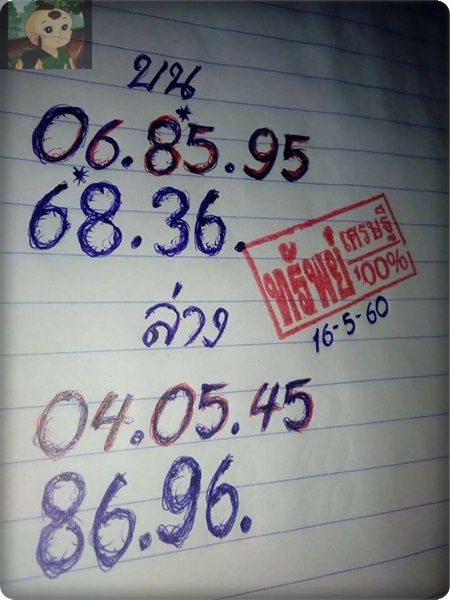 บน
06.85*.95
68*.36.
ทรัพย์เศรษฐี
100%
16-5-60
ล่าง
04.05.45
86.96.